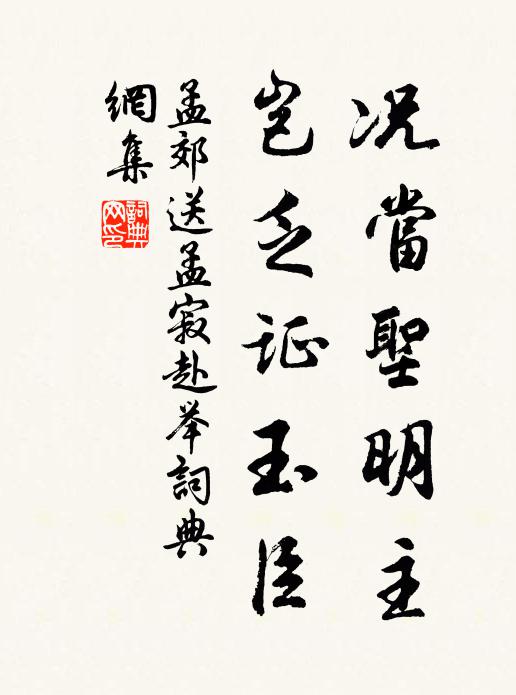 况當聖明主
豈乏证玉臣
孟郊送孟寂赴举詞典
網集
詞典
网印